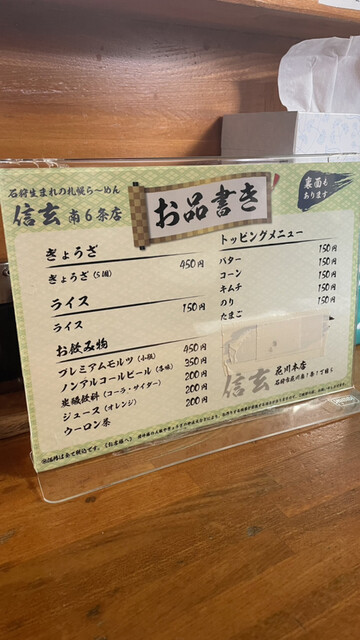 石狩生まれの札幌ら〜めん
信玄 南6条店
お品書き
裏面も
あります
ぎょうざ
ぎょうざ(5個) 450円
ライス
ライス 150円
お飲み物
プレミアムモルツ(小瓶) 450円
ノンアルコールビール(各種) 350円
炭酸飲料(コーラ・サイダー) 200円
ジュース(オレンジ) 200円
ウーロン茶 200円
トッピングメニュー
バター 150円
コーン 150円
キムチ 150円
のり 150円
たまご
信玄 花川本店
※価格は全て税込です。